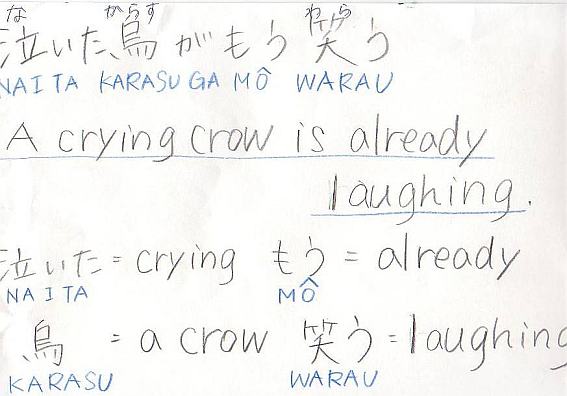 な からす わら
泣いた烏がもう笑う
NAITA KARASU GA MÔ WARAU
A crying crow is already
laughing.
泣いた = crying もう = already
NAITA MÔ
烏 = a crow 笑う = laughing
KARASU WARAU